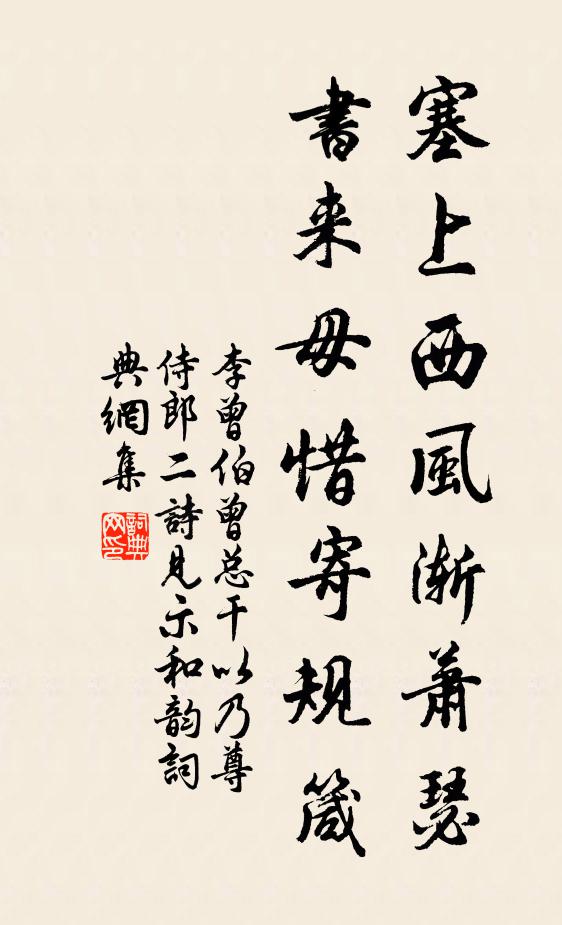 塞上西風漸蕭瑟
書来毋惜寄規箴
李曾伯曾总干以乃尊
侍郎二詩見示和韵詞
典網集
詞典
网印